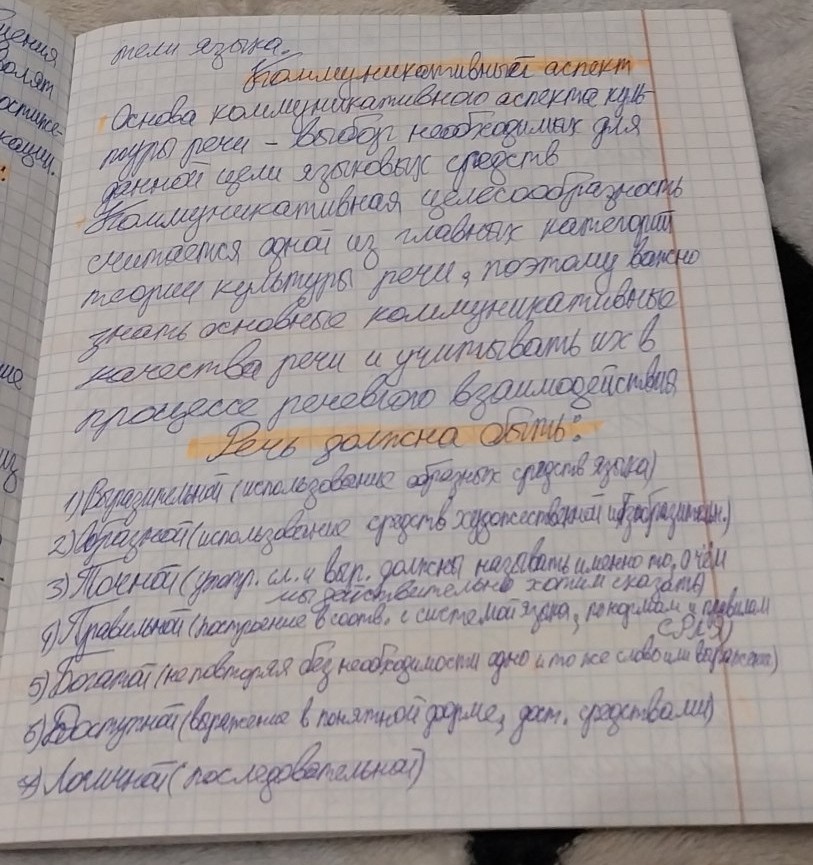 тели языка.
Коммуникативный аспект
Основа коммуникативного аспекта куль-
туры речи - выбор необходимых для
данной цели языковых средств
Коммуникативная целесообразность
считается одной из главных категорий
теории культуры речи, поэтому важно
знать основные коммуникативные
качества речи и учитывать их в
процессе речевого взаимодействия
Речь должна быть:
1) Выразительной (использование образных средств языка)
2) Образной (использование средств художественной изобразительн.)
3) Точной (употр. сл. и выр. должны называть именно то, о чём
мы действительно хотим сказать)
4) Правильной (построение в соотв. с системой языка, по нормам и правилам
СРЛЯ)
5) Богатой (не повторяя без необходимости одно и то же слово или выражение)
6) Доступной (выражение в понятной форме, дост. средствами)
7) Логичной (последовательной)
щения
волят
остиже-
кации.
ие
из